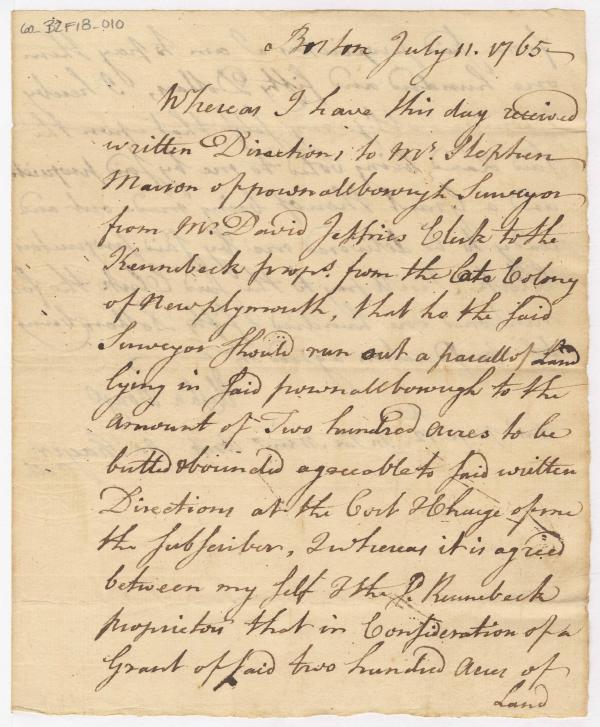 60_32F18_010
Boston July 11. 1765
Whereas I have this day received
written Directions to Mr. Stephen
Marson of pownallborough Surveyor
from Mr. David Jeffries Clerk to the
Kennebeck props. from the Late Colony
of Newplymouth, that he the said
Surveyor should run out a parcell of Land
lying in said pownallborough to the
amount of Two hundred acres to be
butted & bounded agreeable to said written
Directions at the Cost & Charge of me
the subscriber, & whereas it is agreed
between my self & the sd. Kennebeck
proprietors that in Consideration of a
Grant of said two hundred Acres of
Land